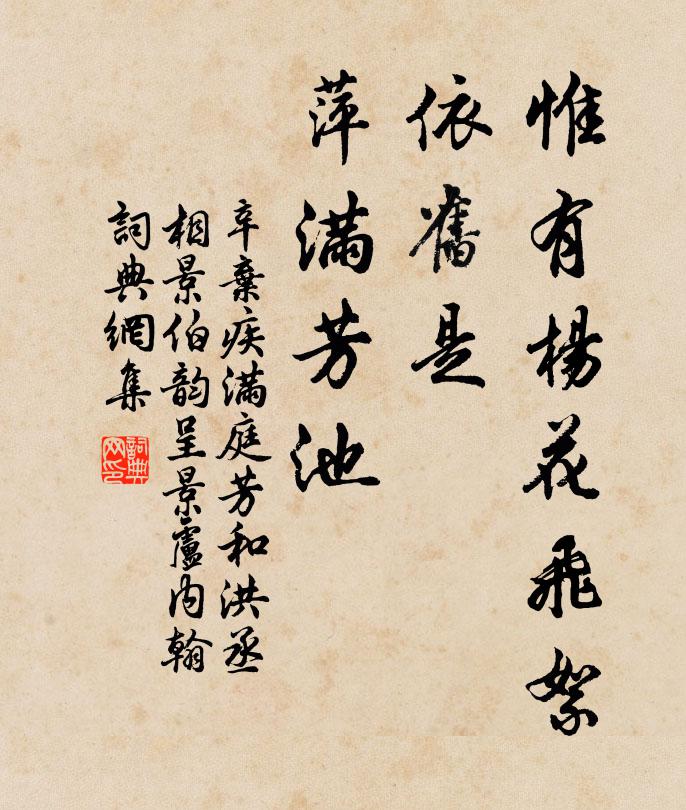 惟有楊花飛絮
依舊是
萍滿芳池
辛棄疾滿庭芳和洪丞
相景伯韵呈景廬内翰
詞典網集
詞典
网印